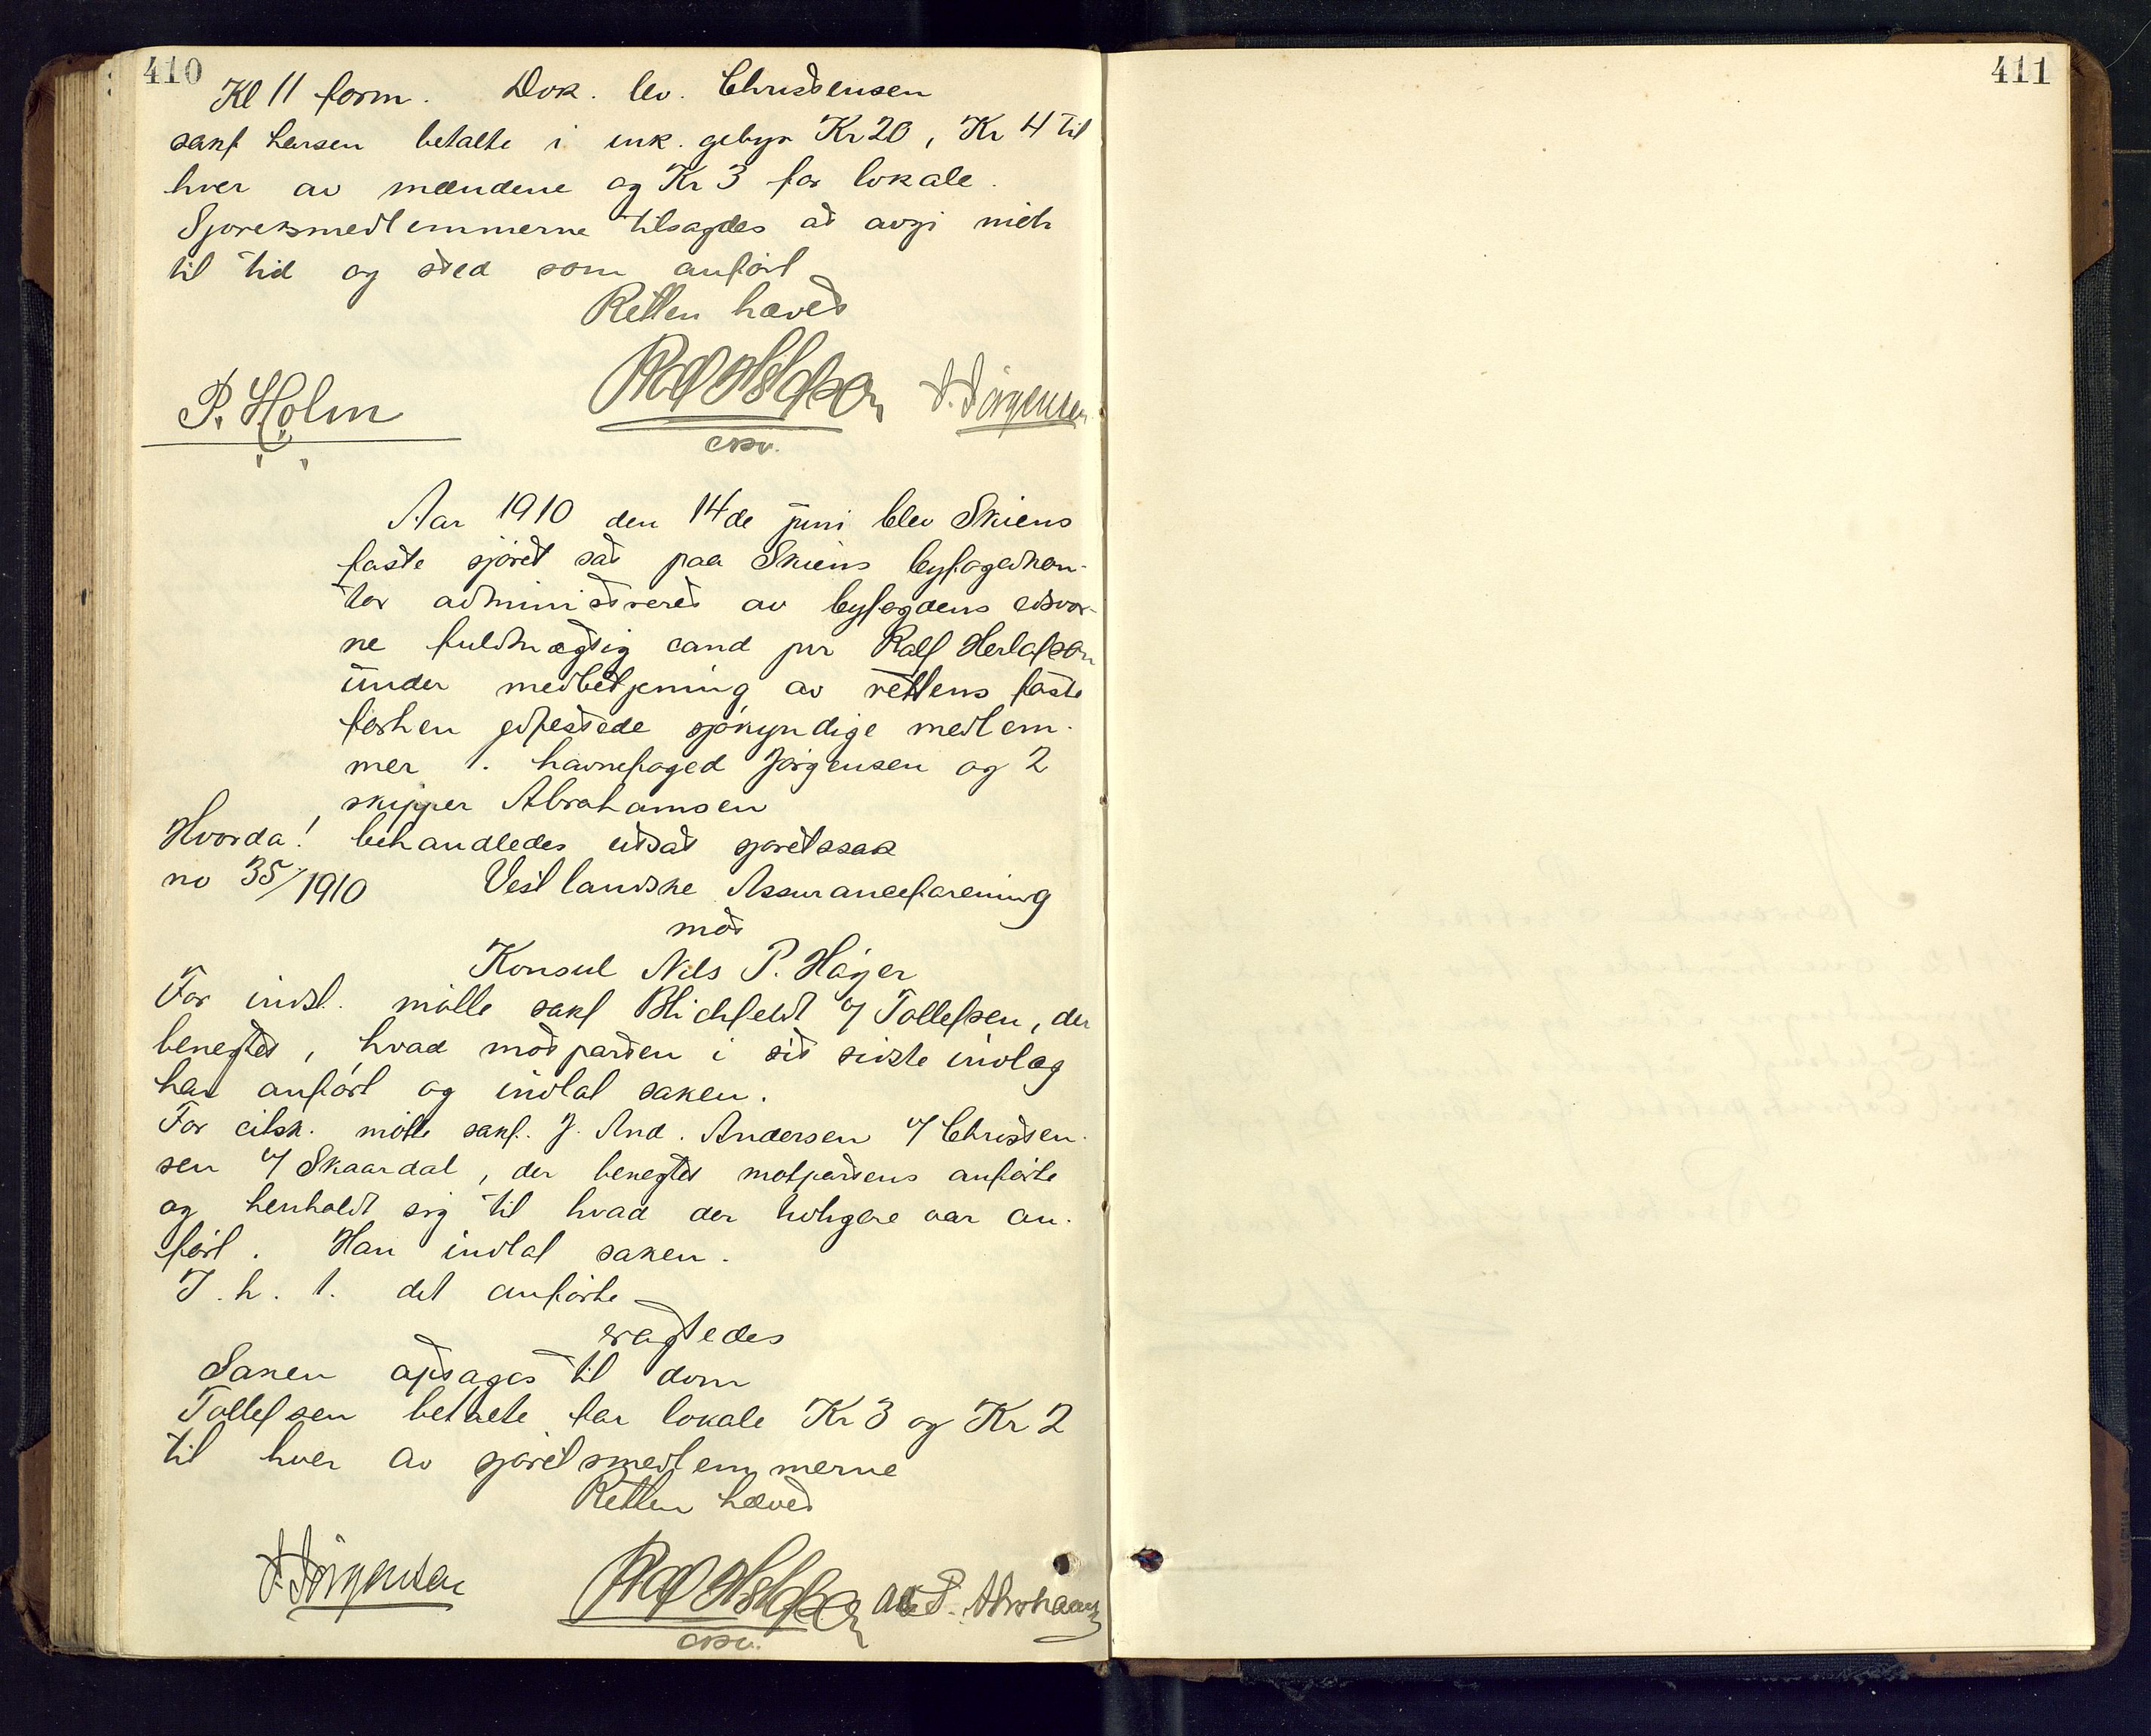 410
Kl 11 form. Dok. lev. Christensen
sakf Larsen betalte i ink. gebyr Kr 20, Kr 4 til
hver av mændene og Kr 3 for lokale.
Sjøretsmedlemmerne tilsagdes at avgi møte
til tid og sted som anført
Retten hævet
P. Holm
Jørgensen
Aar 1910 den 14de juni blev Skiens
faste sjøret sat paa Skiens byfogedkon-
tor administreret av byfogdens edsvor-
ne fuldmægtig cand jur Ralf Herlofson
under medbetjening av rettens faste
forhen edfestede sjøkyndige medlem-
mer 1. havnefoged Jørgensen og 2
skipper Abrahamsen
Hvorda! behandledes utsat sjøretssak
no 35/1910 Vestlandske Assuranceforening
mot
Konsul Nils P. Høyer
For indst. møtte sakf Blichfeldt v/ Tollefsen, der
benegtet, hvad motparten i sit sidste indlæg
har anført og indlot saken.
For citsk. møtte sakf. J. And. Andersen v/ Christen-
sen v/ Skaardal, der benegtet motpartens anførte
og henholdt sig til hvad der tidligere var an-
ført. Han indlot saken.
I. h. t. det anførte
eragtedes
Saken optages til dom
Tollefsen betalte for lokale Kr 3 og Kr 2
til hver av sjøretsmedlemmerne
Retten hævet
Jørgensen
P. Abrahamsen
411